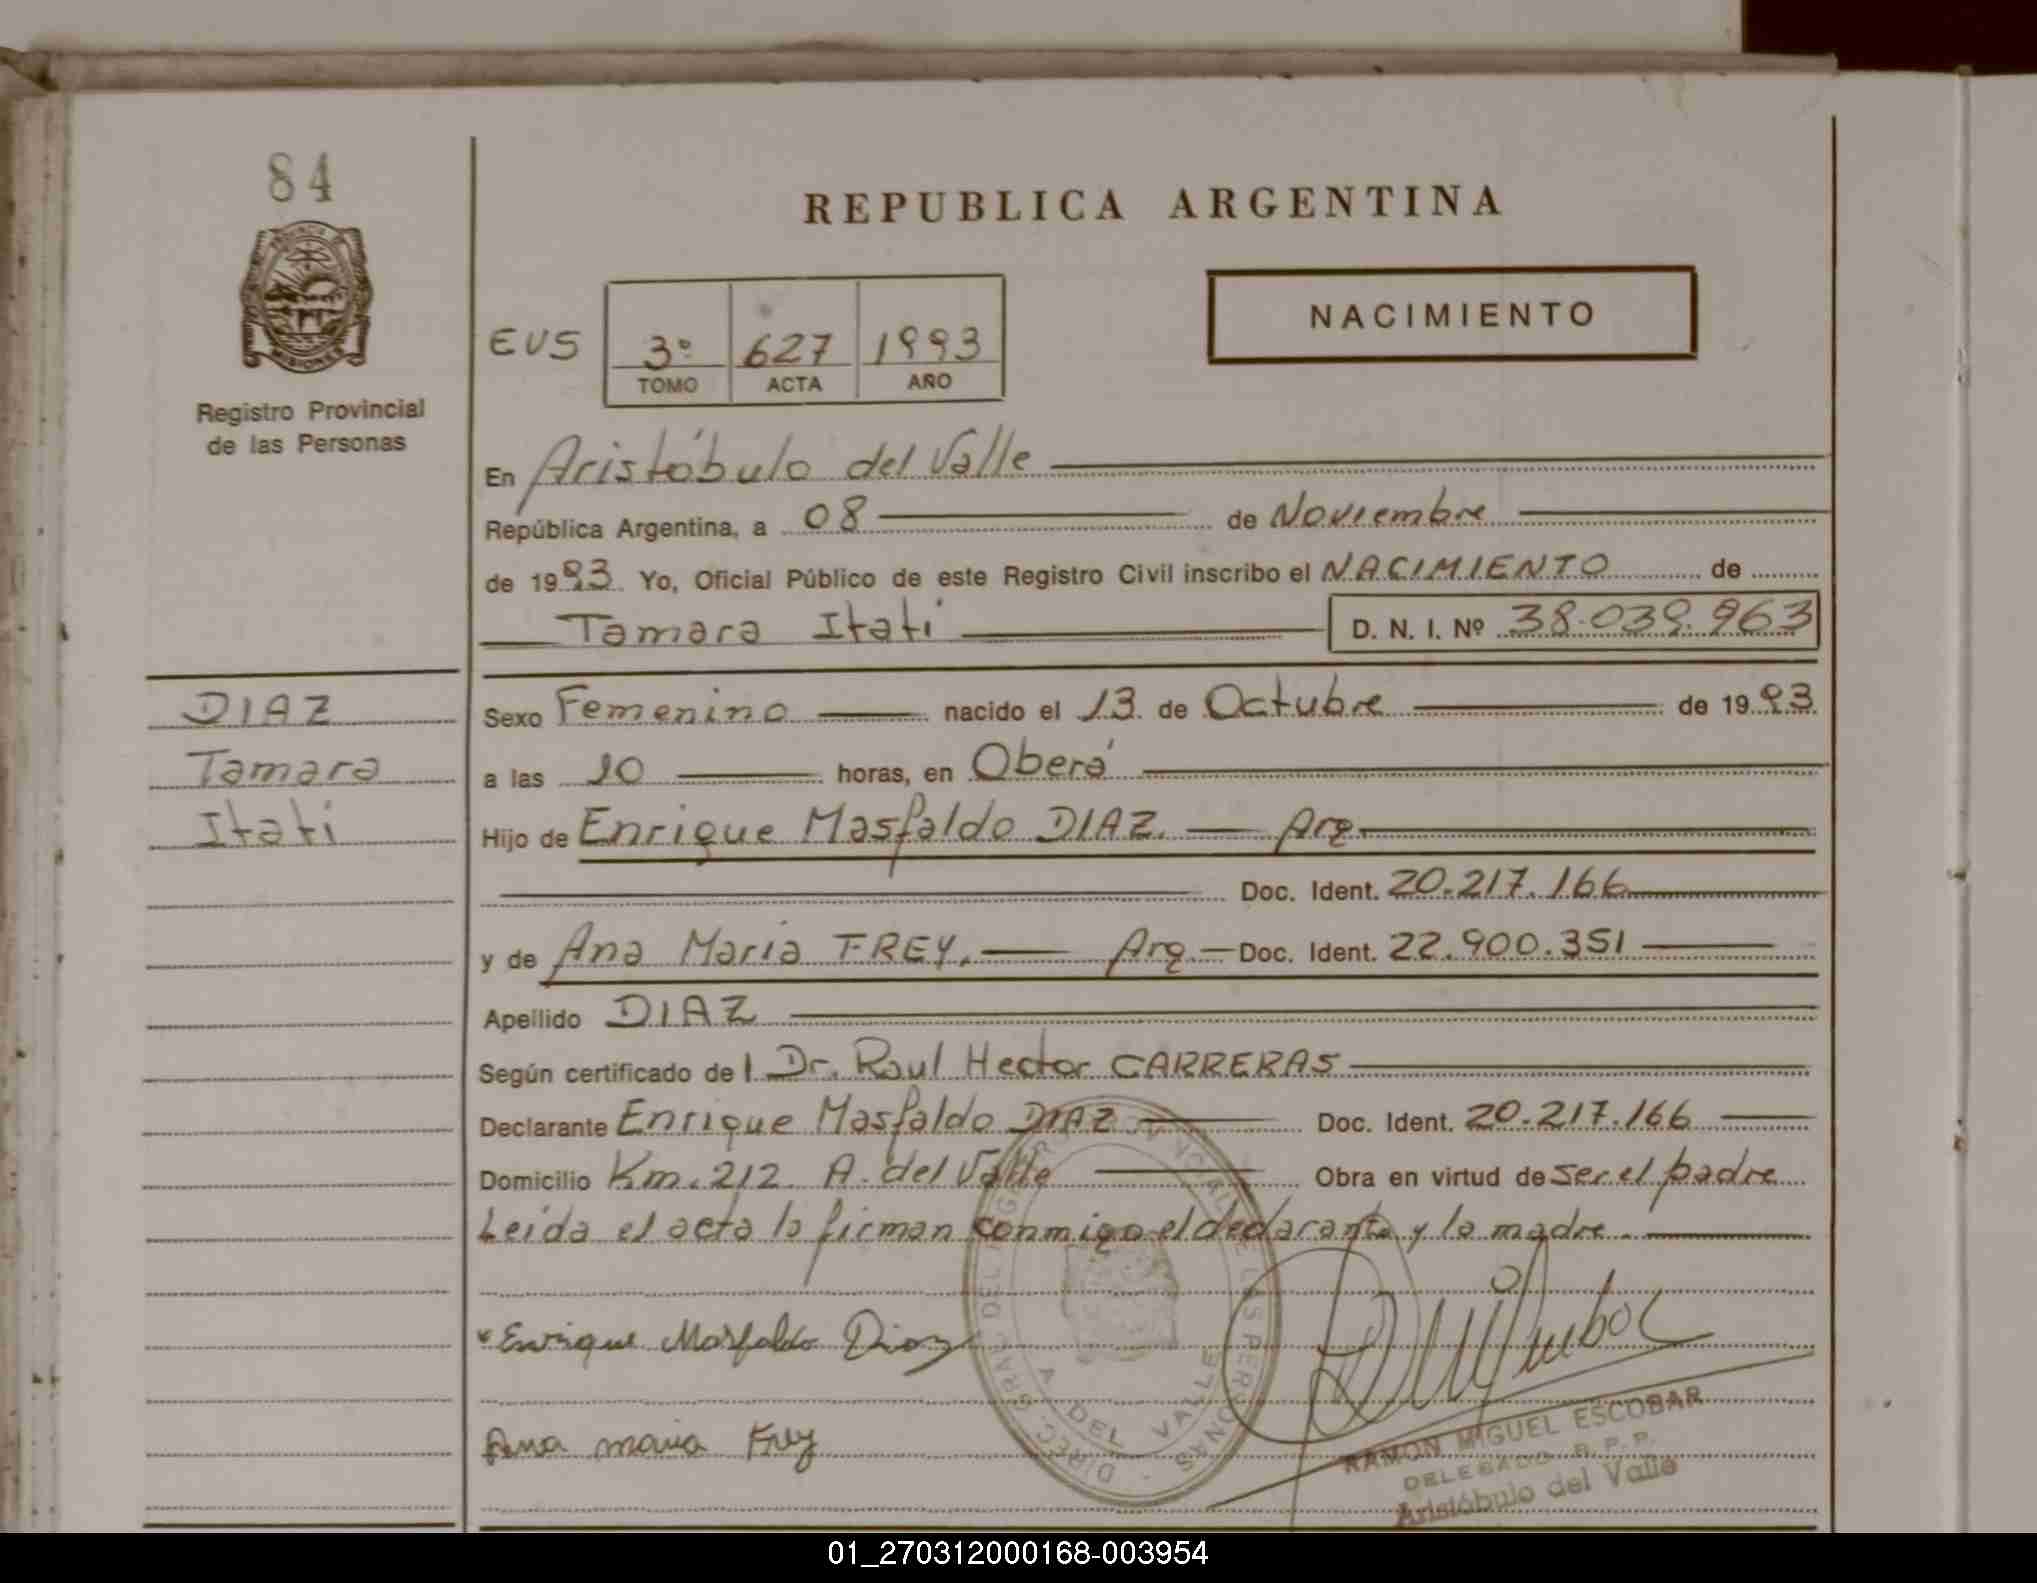 84
REPUBLICA ARGENTINA
NACIMIENTO
EVS 3º 627 1993
TOMO ACTA AÑO
MISIONES
Registro Provincial
de las Personas
En Aristóbulo del Valle
República Argentina, a 08 de Noviembre
de 1993 Yo, Oficial Público de este Registro Civil inscribo el NACIMIENTO de
Tamara Itati D. N. I. Nº 38.039.963
DIAZ
Tamara
Itati
Sexo Femenino nacido el 13 de Octubre de 1993
a las 10 horas, en Oberá
Hijo de Enrique Masfaldo DIAZ. Arg.
Doc. Ident. 20.217.166
y de Ana Maria FREY. Arg. Doc. Ident. 22.900.351
Apellido DIAZ
Según certificado del Dr. Raul Hector CARRERAS
Declarante Enrique Masfaldo DIAZ Doc. Ident. 20.217.166
Domicilio Km. 212 A. del Valle Obra en virtud de ser el padre
Leída el acta la firman conmigo el declarante y la madre.
Enrique Masfaldo Diaz
Ana maria Frey
A DEL VALLE
RAMON MIGUEL ESCOBAR
DELEGADO R. P. P.
Aristóbulo del Valle
01_270312000168-003954